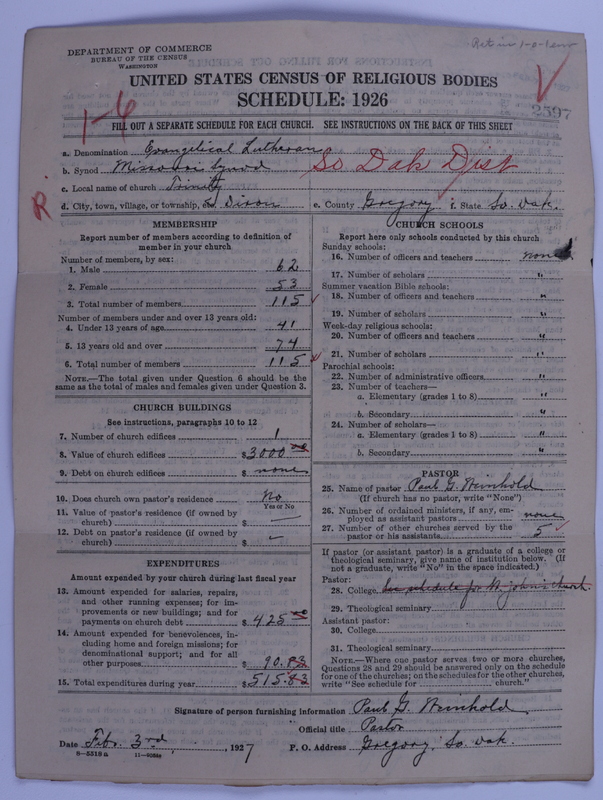 DEPARTMENT OF COMMERCE
BUREAU OF THE CENSUS
WASHINGTON
UNITED STATES CENSUS OF RELIGIOUS BODIES
SCHEDULE: 1926
2597
1-6
FILL OUT A SEPARATE SCHEDULE FOR EACH CHURCH. SEE INSTRUCTIONS ON THE BACK OF THIS SHEET
a. Denomination Evangelical Lutheran
b. Synod Missouri Synod So Dak Dist
c. Local name of church Trinity
R.
d. City, town, village, or township, Dixon e. County Gregory f. State So. Dak.
MEMBERSHIP
Report number of members according to definition of
member in your church
Number of members, by sex:
1. Male 62
2. Female 53
3. Total number of members 115
Number of members under and over 13 years old:
4. Under 13 years of age 41
5. 13 years old and over 74
6. Total number of members 115
NOTE.—The total given under Question 6 should be the
same as the total of males and females given under Question 3.
CHURCH BUILDINGS
See instructions, paragraphs 10 to 12
7. Number of church edifices 1
8. Value of church edifices $3000 00
9. Debt on church edifices $ none
10. Does church own pastor's residence No
Yes or No
11. Value of pastor's residence (if owned by
church) $ —
12. Debt on pastor's residence (if owned by
church) $ —
EXPENDITURES
Amount expended by your church during last fiscal year
13. Amount expended for salaries, repairs,
and other running expenses; for im-
provements or new buildings; and for
payments on church debt $ 425 00
14. Amount expended for benevolences, in-
cluding home and foreign missions; for
denominational support; and for all
other purposes 90.83
15. Total expenditures during year $515.83
CHURCH SCHOOLS
Report here only schools conducted by this church
Sunday schools:
16. Number of officers and teachers none
17. Number of scholars "
Summer vacation Bible schools:
18. Number of officers and teachers "
19. Number of scholars "
Week-day religious schools:
20. Number of officers and teachers "
21. Number of scholars "
Parochial schools:
22. Number of administrative officers "
23. Number of teachers—
a. Elementary (grades 1 to 8) "
b. Secondary "
24. Number of scholars—
a. Elementary (grades 1 to 8) "
b. Secondary "
PASTOR
25. Name of pastor Paul G. Weinhold
(If church has no pastor, write "None")
26. Number of ordained ministers, if any, em-
ployed as assistant pastors none
27. Number of other churches served by the
pastor or his assistants 5
If pastor (or assistant pastor) is a graduate of a college or
theological seminary, give name of institution below. (If
not a graduate, write "No" in the space indicated.)
Pastor:
28. College See schedule for St. John's church.
29. Theological seminary
Assistant pastor:
30. College
31. Theological seminary
NOTE.—Where one pastor serves two or more churches,
Questions 28 and 29 should be answered only on the schedule
for one of the churches; on the schedules for the other churches,
write "See schedule for ______ church."
Signature of person furnishing information Paul G. Weinhold
Official title Pastor
Date Feb. 3rd, 1927 P. O. Address Gregory, So. Dak.
8-5318a 11-4088